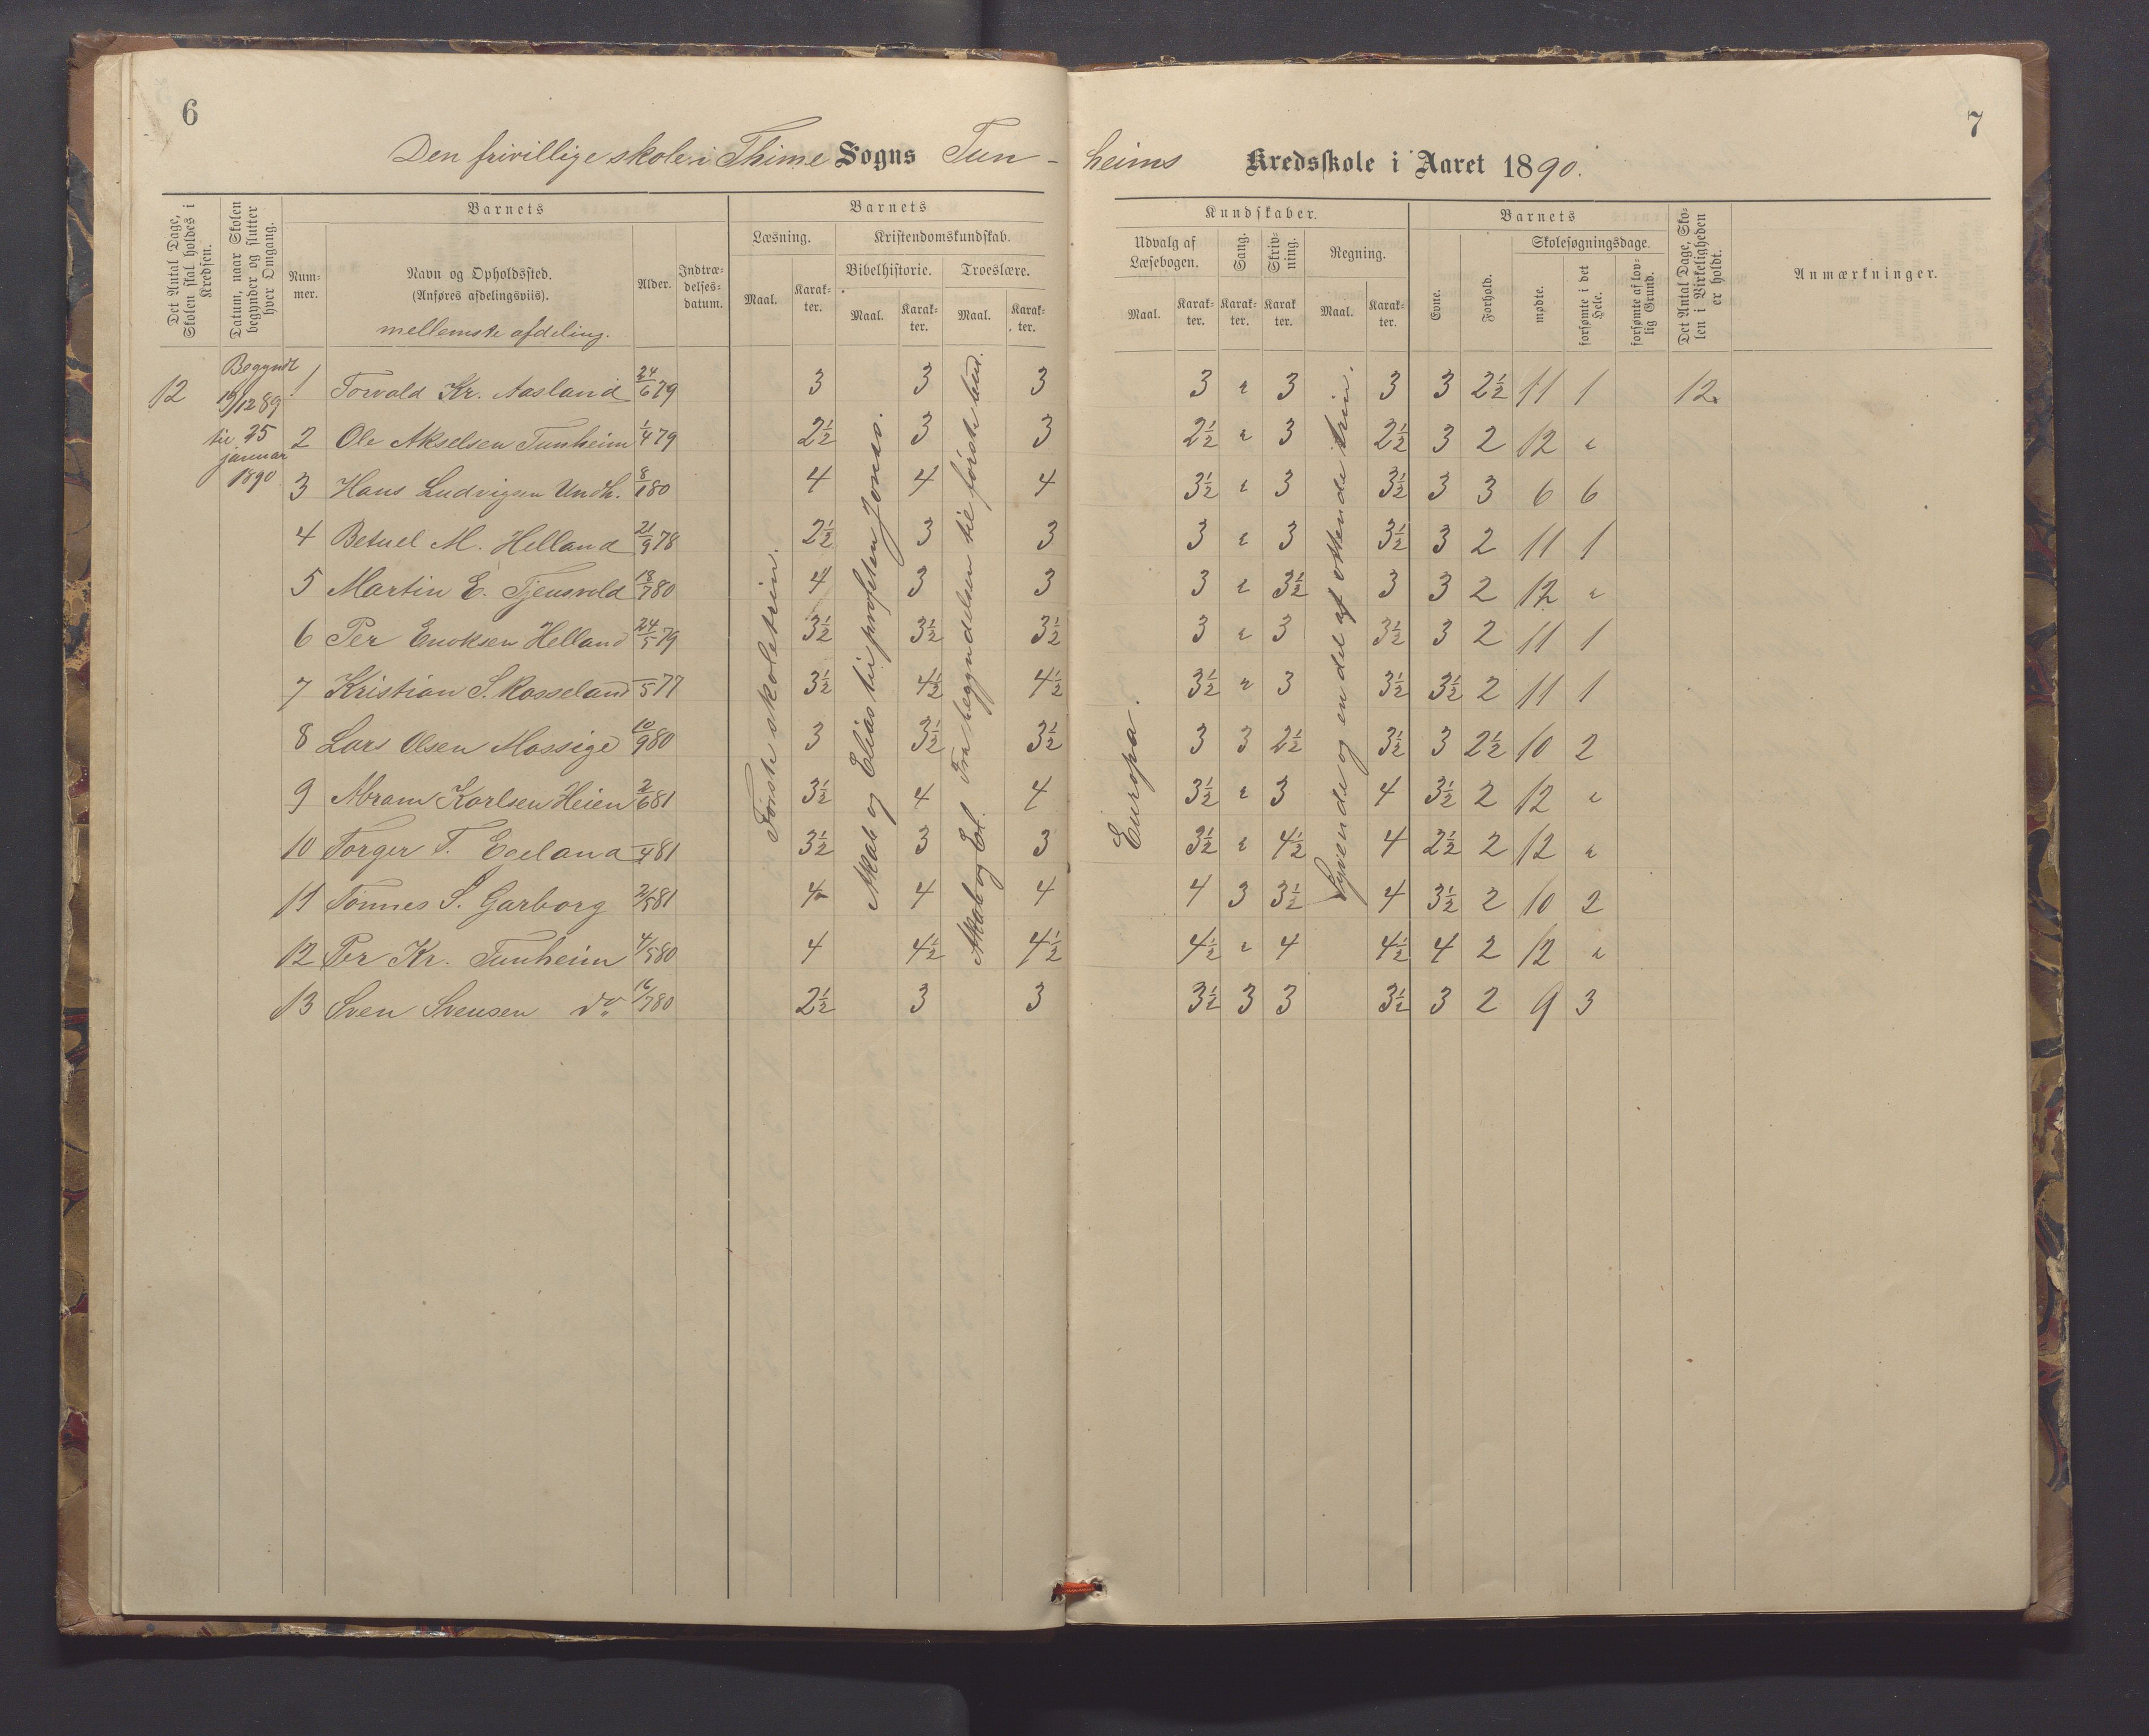 6
7
Den frivillige skole i Thime Sogns Tun-
heims Kredsskole i Aaret 1890.
Det Antal Dage, Skolen skal holdes i Kredsen.
Datum, naar Skolen begynder og slutter hver Omgang.
Barnets
Num-
mer.
Navn og Opholdssted.
(Anføres afdelingsviis).
mellemste afdeling.
Alder.
Indtræ-
delses-
datum.
Barnets
Læsning.
Kristendomskundskab.
Bibelhistorie.
Troeslære.
Maal. Karak-
ter.
Maal. Karak-
ter.
Maal. Karak-
ter.
Kundskaber.
Udvalg af
Læsebogen.
Sang.
Skriv-
ning.
Regning.
Maal. Karak-
ter. Karak-
ter. Karak
ter. Maal. Karak-
ter.
Barnets
Evne.
Forhold.
Skolesøgningsdage.
mødte.
forsømte i det Hele.
forsømte af lov-
lig Grund.
Det Antal Dage, Sko-
len i Virkeligheden
er holdt.
Anmærkninger.
12
Begyndt
/12 89
til 25
januar
1890
Første skoletrin.
Akab og Elias til profeten Jonas.
Fra begyndelsen til første bud.
Europa.
Syvende og en del af ottende trin.
1 Torvald Kr. Aasland 24/6 79 3 3 3 3 " 3 3 3 2½ 11 1 12
2 Ole Akselsen Tunheim 1/4 79 2½ 3 3 2½ " 3 2½ 3 2 12 "
3 Hans Ludvigsen Undh. 8/1 80 4 4 4 3½ " 3 3½ 3 3 6 6
4 Betuel M. Helland 21/9 78 2½ 3 3 3 " 3 3½ 3 2 11 1
5 Martin E. Tjensvold 18/7 80 4 3 3 3 " 3½ 3 3 2 12 "
6 Per Enoksen Helland 24/5 79 3½ 3½ 3½ 3 " 3 3½ 3 2 11 1
7 Kristian S. Rosseland –/5 77 3½ 4½ 4½ 3½ " 3 3½ 3½ 2 11 1
8 Lars Olsen Mossige 10/9 80 3 3½ 3½ 3 3 2½ 3½ 3 2½ 10 2
9 Abram Karlsen Heien 2/6 81 3½ 4 4 3½ " 3 4 3½ 2 12 "
10 Torger T. Eeeland –/4 81 3½ 3 3 3½ " 4½ 4 2½ 2 12 "
11 Tønnes S. Garborg 2/5 81 4 4 4 4 3 3½ 4 3½ 2 10 2
12 Per Kr. Tunheim 4/5 80 4 4½ 4½ 4½ " 4 4½ 4 2 12 "
13 Sven Svensen do 16/7 80 2½ 3 3 3½ 3 3 3½ 3 2 9 3